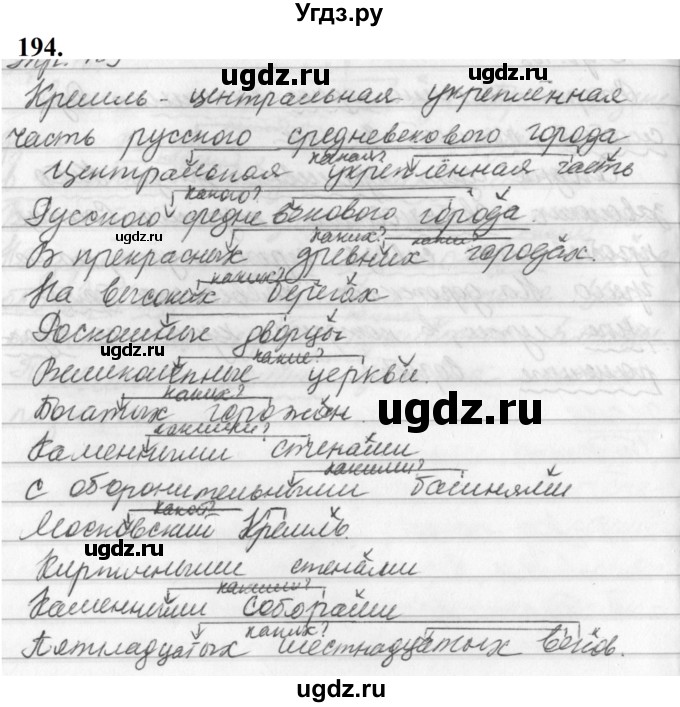 Угдз.ру
194.
Кремль - центральная укрепленная
часть русского средневекового города
какая?
Центральная укреплённая часть
какого?
Русского средневекового города.
каких? каких?
В прекрасных древних городах.
каких?
На высоких берегах
Роскошные дворцы
какие?
Великолепные церкви.
каких?
Богатых горожан.
какими?
Каменными стенами
какими?
с оборонительными башнями
какой?
Московский Кремль
Кирпичными стенами
какими?
Каменными соборами
каких?
Пятнадцатых шестнадцатых веков.
ugdz.ru
ugdz.ru
ugdz.ru
ugdz.ru
ugdz.ru
ugdz.ru
ugdz.ru
ugdz.ru
ugdz.ru
ugdz.ru
ugdz.ru